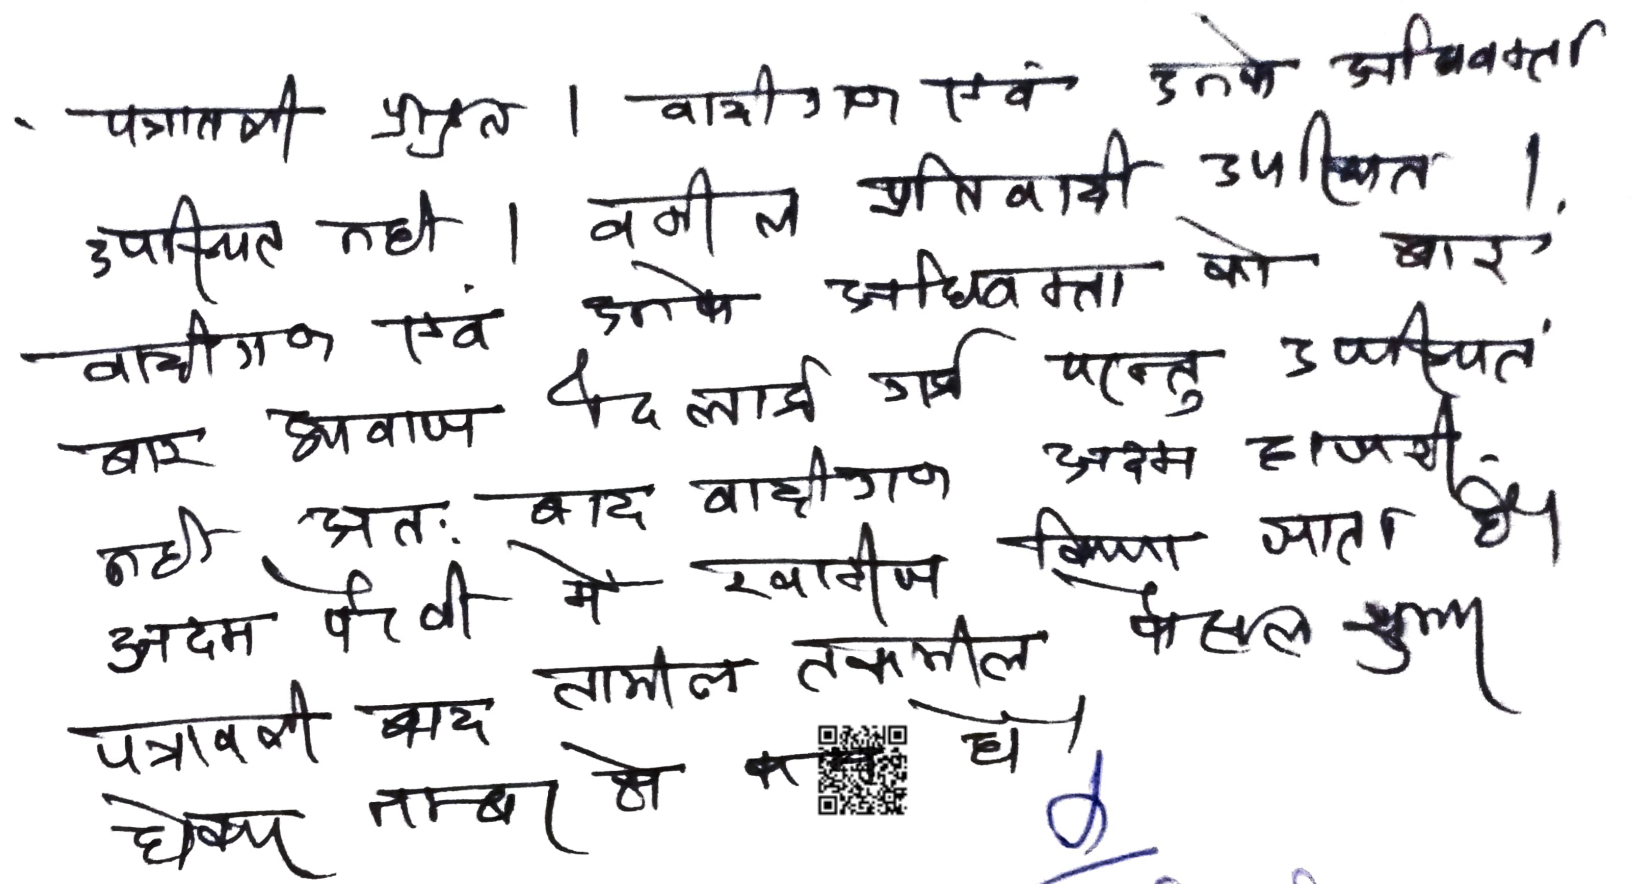 पत्रावली प्रस्तुत । वादीगण एवं उनके अधिवक्ता
उपस्थित नहीं । वकील प्रतिवादी उपस्थित ।
वादीगण एवं उनके अधिवक्ता को बार
बार आवाज दिलाई गई परन्तु उपस्थित
नहीं अतः वाद वादीगण अदम हाजरी
अदम पैरवी में खारीज किया जाता है।
पत्रावली बाद तामील तकमील फैसल शुमार
होकर नम्बर से कम हो।